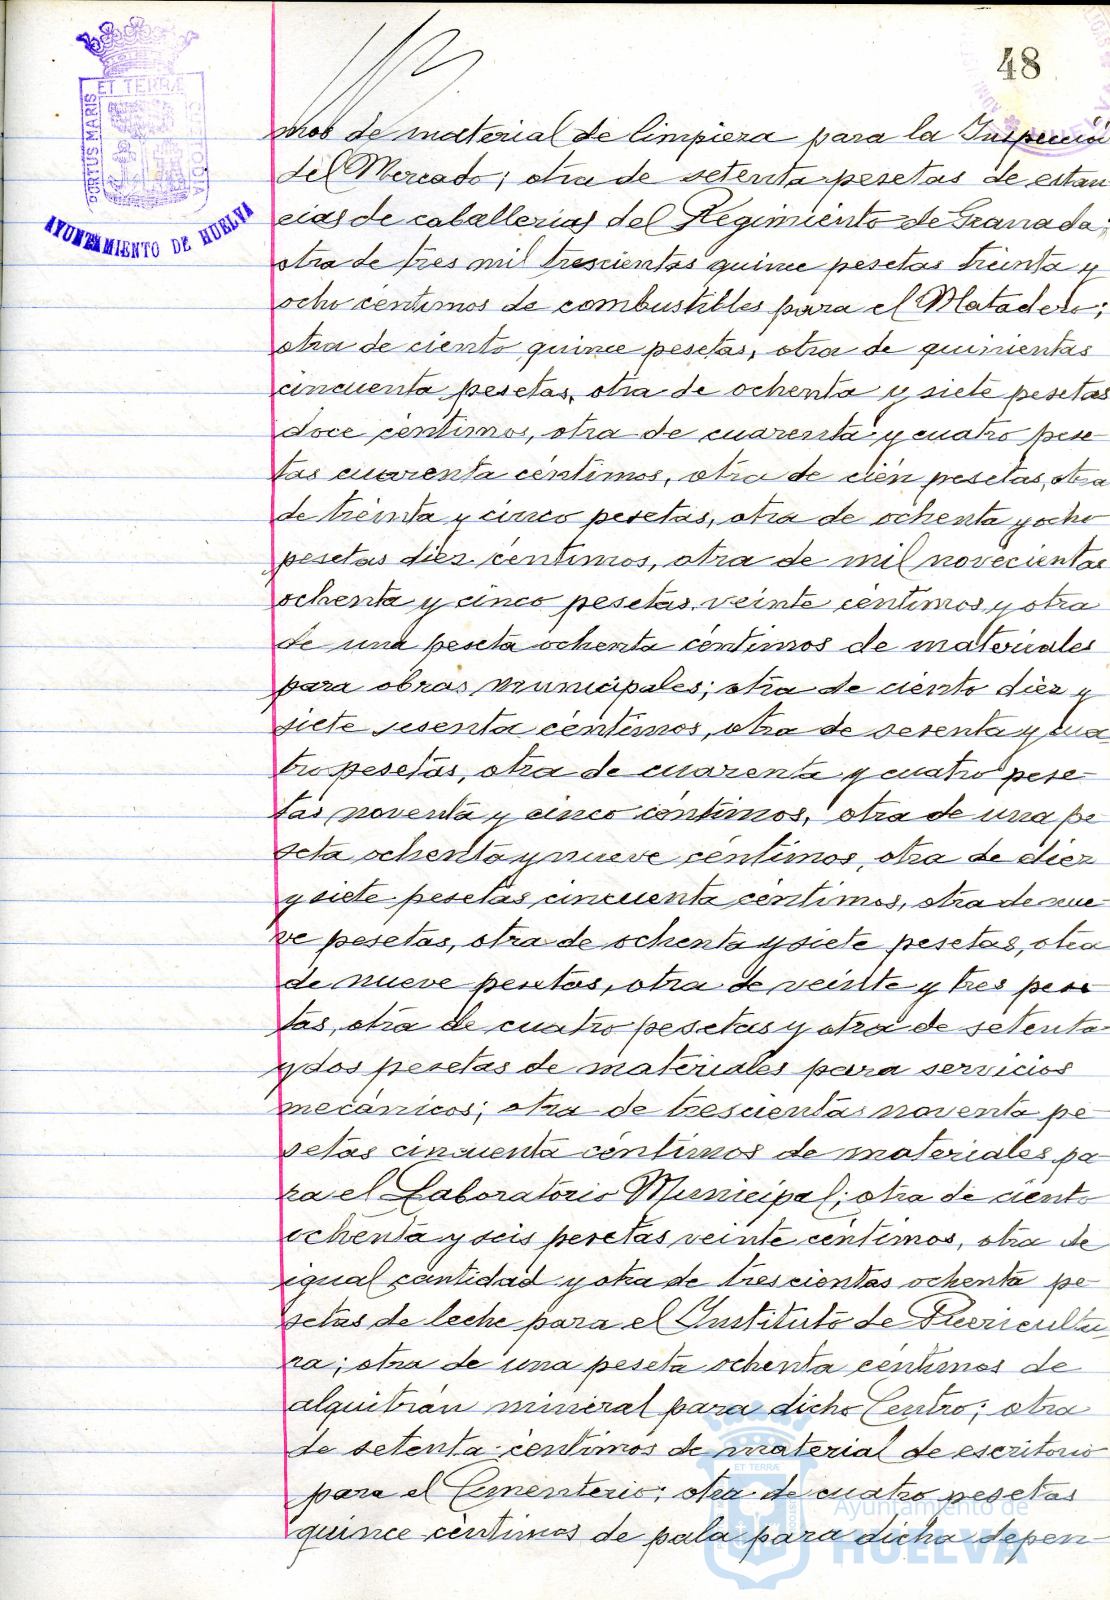 48
ET TERRÆ
PORTUS MARIS
CUSTODIA
AYUNTAMIENTO DE HUELVA
mos de material de limpieza para la Inspección
del Mercado; otra de setenta pesetas de estan
cias de caballerias del Regimiento de Granada;
otra de tres mil trescientas quince pesetas treinta y
ocho céntimos de combustibles para el Matadero;
otra de ciento quince pesetas, otra de quinientas
cincuenta pesetas, otra de ochenta y siete pesetas
doce céntimos, otra de cuarenta y cuatro pese-
tas cuarenta céntimos, otra de cien pesetas, otra
de treinta y cinco pesetas, otra de ochenta y ocho
pesetas diez céntimos, otra de mil novecientas
ochenta y cinco pesetas veinte céntimos y otra
de una peseta ochenta céntimos de materiales
para obras municipales; otra de ciento diez y
siete sesenta céntimos, otra de sesenta y cua-
tro pesetas, otra de cuarenta y cuatro pese-
tas noventa y cinco céntimos, otra de una pe-
seta ochenta y nueve céntimos, otra de diez
y siete pesetas cincuenta céntimos, otra de nue-
ve pesetas, otra de ochenta y siete pesetas, otra
de nueve pesetas, otra de veinte y tres pese
tas, otra de cuatro pesetas y otra de setenta
y dos pesetas de materiales para servicios
mecánicos; otra de trescientas noventa pe-
setas cincuenta céntimos de materiales pa-
ra el Laboratorio Municipal; otra de ciento
ochenta y seis pesetas veinte céntimos, otra de
igual cantidad y otra de trescientas ochenta pe-
setas de leche para el Instituto de Puericultu-
ra; otra de una peseta ochenta céntimos de
alquitrán mineral para dicho Centro; otra
de setenta céntimos de material de escritorio
para el Cementerio; otra de cuatro pesetas
quince céntimos de pala para dicha depen-
ET TERRÆ
Ayuntamiento de
HUELVA